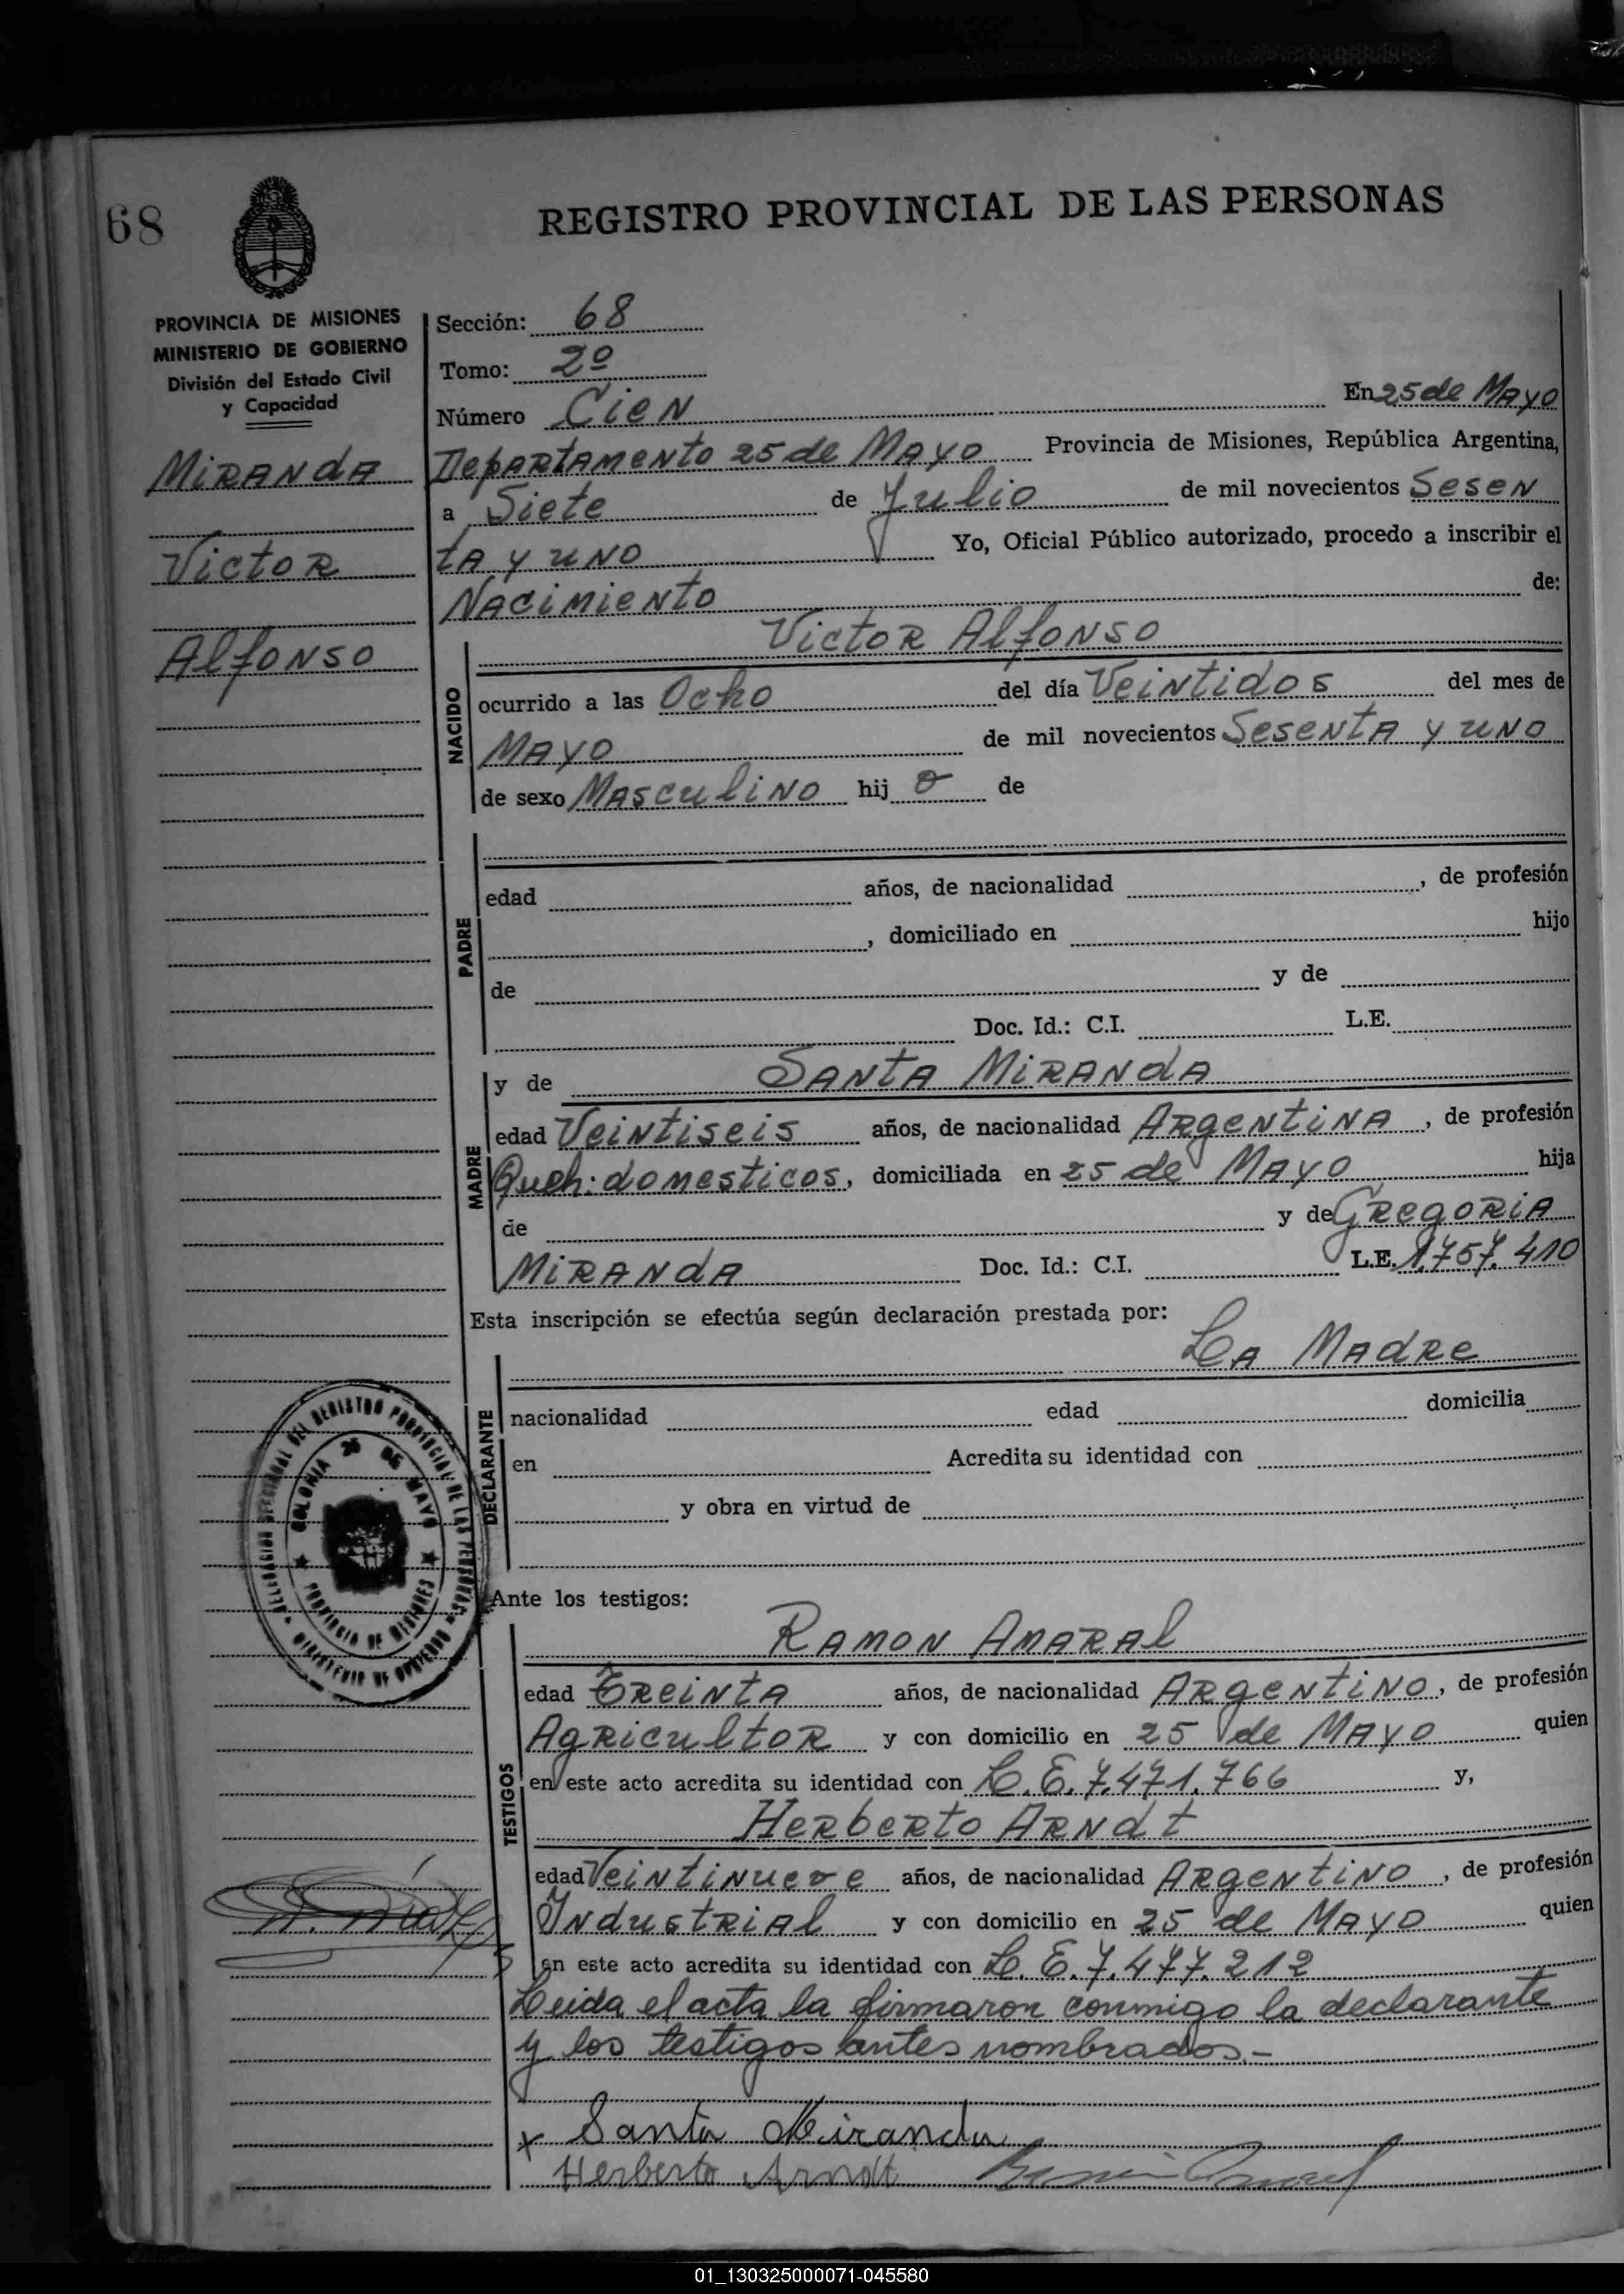 68
REGISTRO PROVINCIAL DE LAS PERSONAS
PROVINCIA DE MISIONES
MINISTERIO DE GOBIERNO
División del Estado Civil
y Capacidad
MIRANDA
Victor
Alfonso
Sección: 68
Tomo: 2º
Número Cien En 25 de Mayo
Departamento 25 de Mayo Provincia de Misiones, República Argentina,
a Siete de Julio de mil novecientos Sesen
ta y uno Yo, Oficial Público autorizado, procedo a inscribir el
Nacimiento de:
Victor Alfonso
NACIDO
ocurrido a las Ocho del día Veintidos del mes de
Mayo de mil novecientos Sesenta y uno
de sexo Masculino hij o de
PADRE
edad años, de nacionalidad , de profesión
, domiciliado en hijo
de y de
Doc. Id.: C.I. L.E.
MADRE
y de Santa Miranda
edad Veintiseis años, de nacionalidad Argentina, de profesión
Queh: domesticos, domiciliada en 25 de Mayo hija
de y de Gregoria
Miranda Doc. Id.: C.I. L.E. 1.757.410
Esta inscripción se efectúa según declaración prestada por:
La Madre
DECLARANTE
nacionalidad edad domicilia
en Acredita su identidad con
y obra en virtud de
DELEGACION SECCIONAL DEL REGISTRO PROVINCIAL DE LAS PERSONAS
MINISTERIO DE GOBIERNO
COLONIA 25 DE MAYO
PROVINCIA DE MISIONES
Ante los testigos:
Ramon Amaral
TESTIGOS
edad Treinta años, de nacionalidad Argentino, de profesión
Agricultor y con domicilio en 25 de Mayo quien
en este acto acredita su identidad con L.E. 7.471.766 y,
Herberto Arndt
edad Veintinueve años, de nacionalidad Argentino, de profesión
Industrial y con domicilio en 25 de Mayo quien
en este acto acredita su identidad con L.E. 7.477.212
Leida el acta la firmaron conmigo la declarante
y los testigos antes nombrados.-
x Santa Miranda
Herberto Arndt
01_130325000071-045580